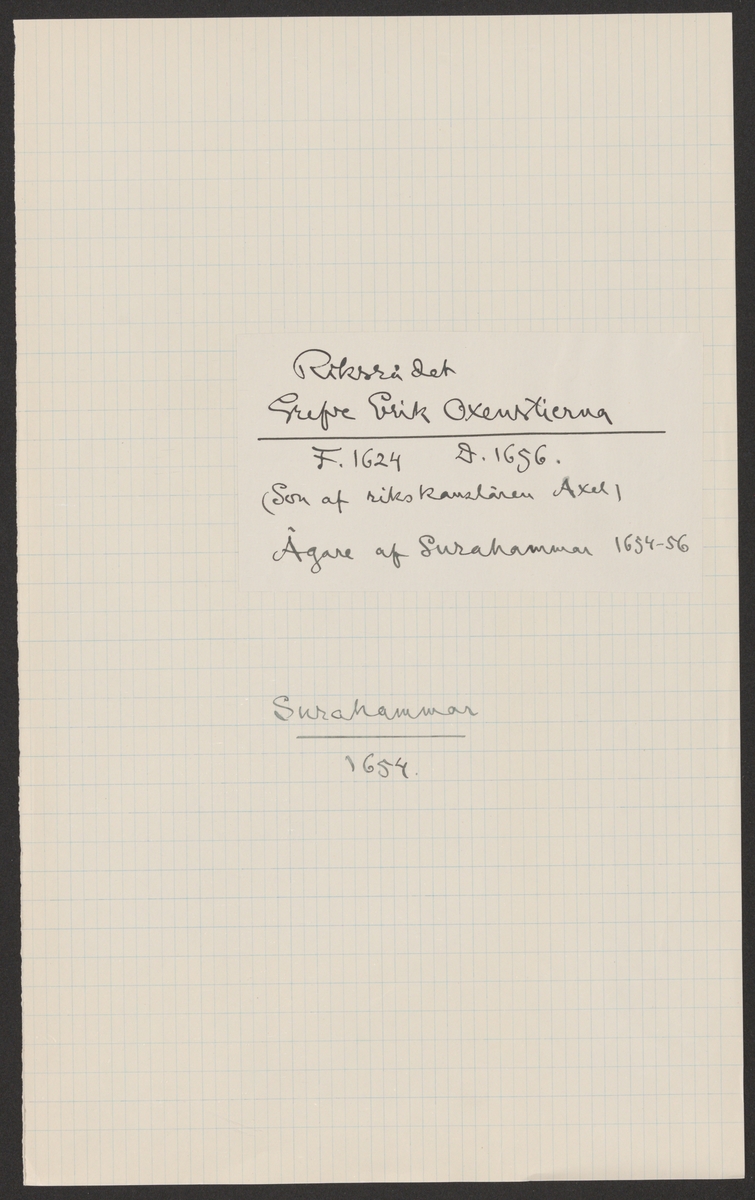 Riksrådet
Grefve Erik Oxenstierna
F. 1624 D. 1656.
(Son af rikskanslären Axel)
Ägare af Surahammar 1654-56
Surahammar
1654.